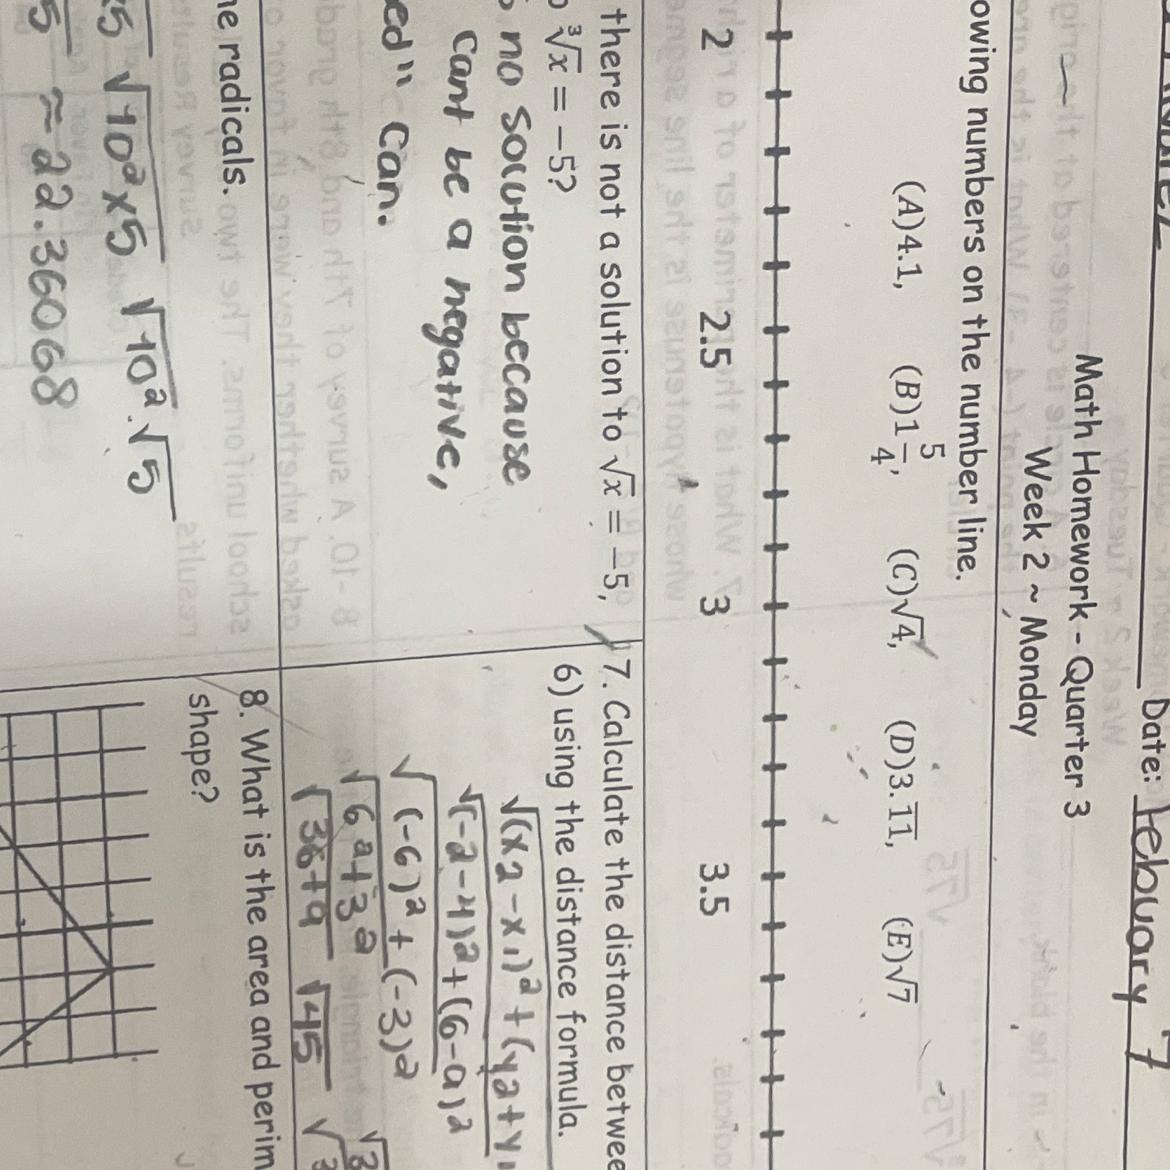 Date: Febuary 7
Math Homework - Quarter 3
Week 2 ~ Monday
owing numbers on the number line.
(A)4.1, (B)1 5/4, (C)√4, (D)3.11, (E)√7
2 2.5 3 3.5
there is not a solution to √x = -5,
∛x = -5?
no solution because
cant be a negative,
ed" can.
7. Calculate the distance betwee
6) using the distance formula.
√(x2-x1)²+(y2+y1
√(-2-4)²+(6-9)²
√(-6)²+(-3)²
√6²+3²
√36+9 √45
he radicals.
√10²x5 √10²·√5
≈ 22.36068
8. What is the area and perim
shape?